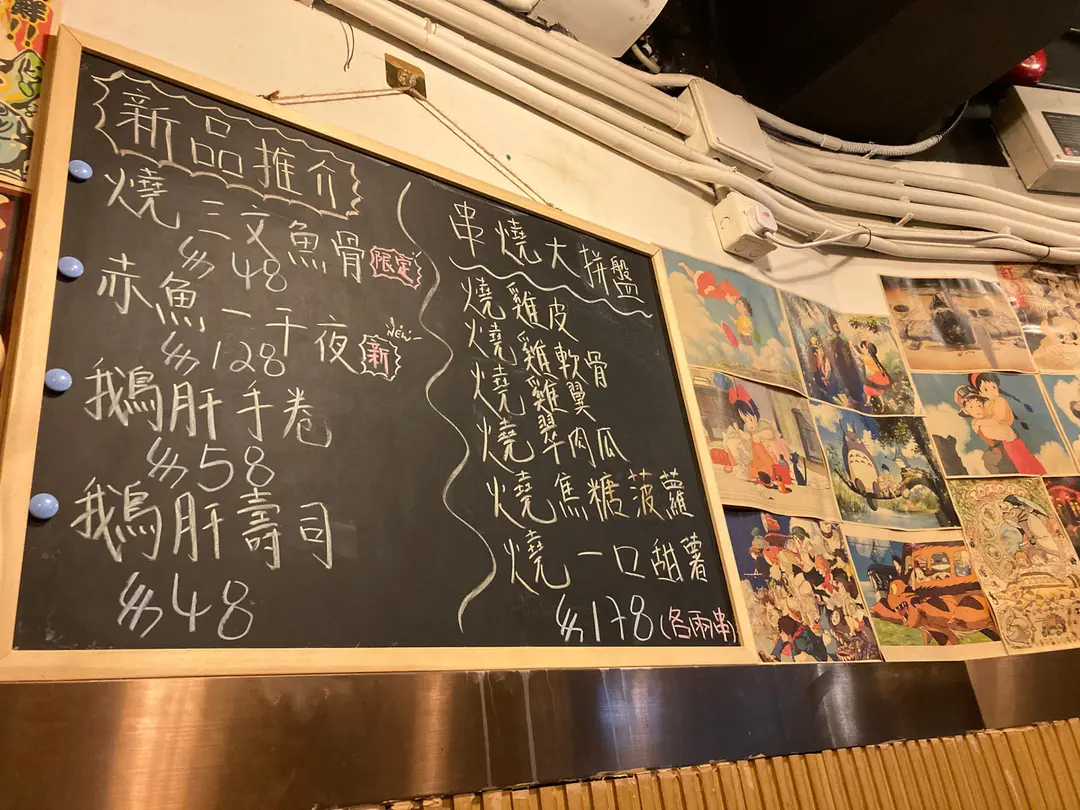 鮮!!
新品推介
燒三文魚骨 限定
$48
赤魚一干夜 New 新
$128
鵝肝手卷
$58
鵝肝壽司
$48
串燒大拼盤
燒雞皮
燒雞軟骨
燒雞翼
燒翠肉瓜
燒焦糖菠蘿
燒一口甜薯
$178 (各兩串)